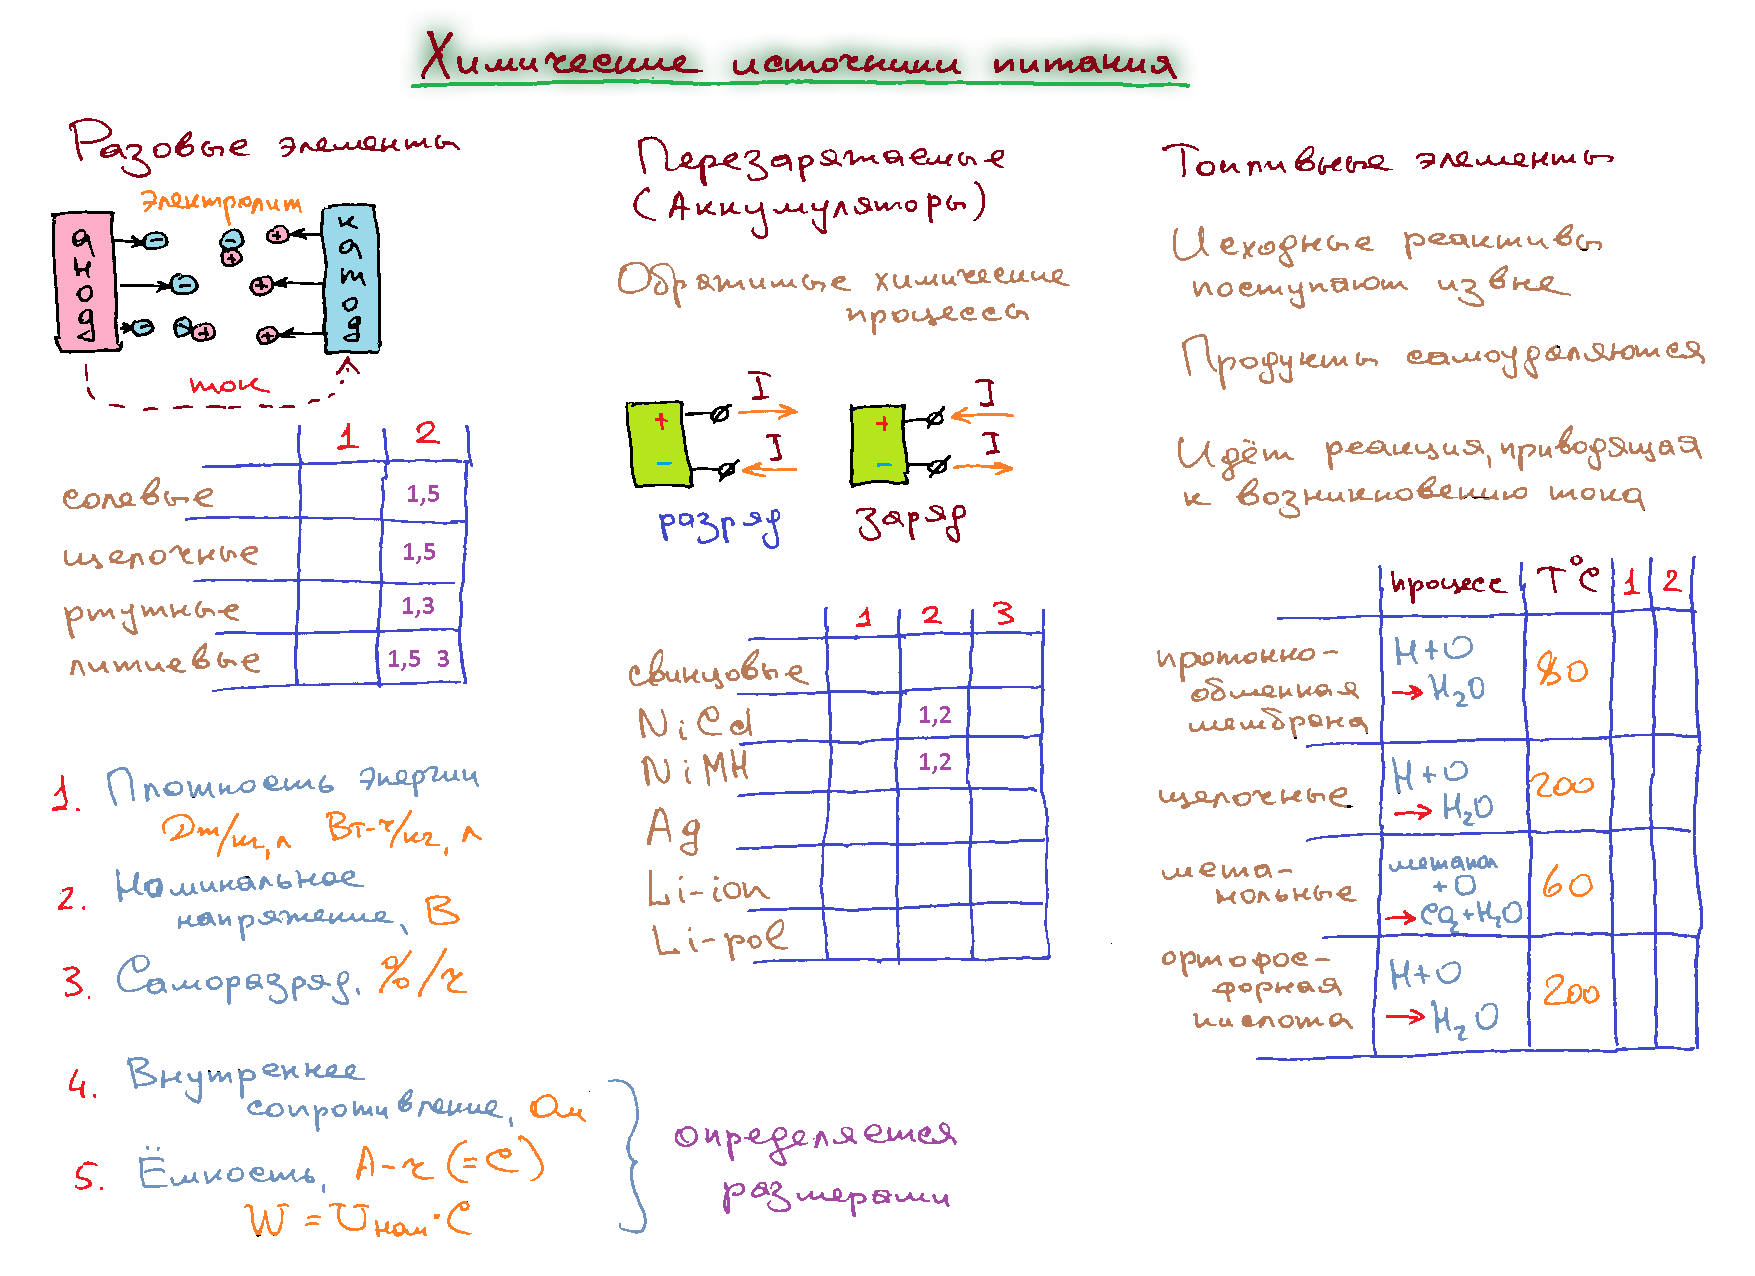 Химические источники питания
Разовые элементы
электролит
анод
катод
ток
1 2
солевые 1,5
щелочные 1,5
ртутные 1,3
литиевые 1,5 3
1. Плотность энергии
Дж/кг, л Вт-ч/кг, л
2. Номинальное
напряжение, В
3. Саморазряд, %/ч
4. Внутреннее
сопротивление, Ом
5. Ёмкость, А-ч (=С)
W = Uном·C
определяется
размерами
Перезаряжаемые
(Аккумуляторы)
Обратимые химические
процессы
+ I
- I
разряд
+ I
- I
заряд
1 2 3
свинцовые
NiCd 1,2
NiMH 1,2
Ag
Li-ion
Li-pol
Топливные элементы
Исходные реактивы
поступают извне
Продукты самоудаляются
Идёт реакция, приводящая
к возникновению тока
процесс T°C 1 2
протонно-
обменная
мембрана
H+O
→ H₂O
80
щелочные
H+O
→ H₂O
200
мета-
нольные
метанол
+ O
→ CO₂+H₂O
60
ортофос-
форная
кислота
H+O
→ H₂O
200